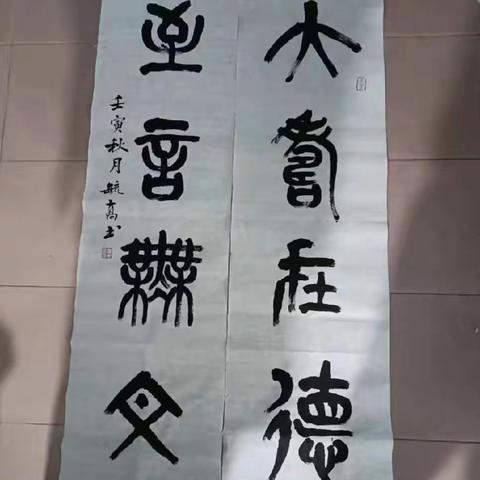 大壽在德
至言無文
壬寅秋月毓高书